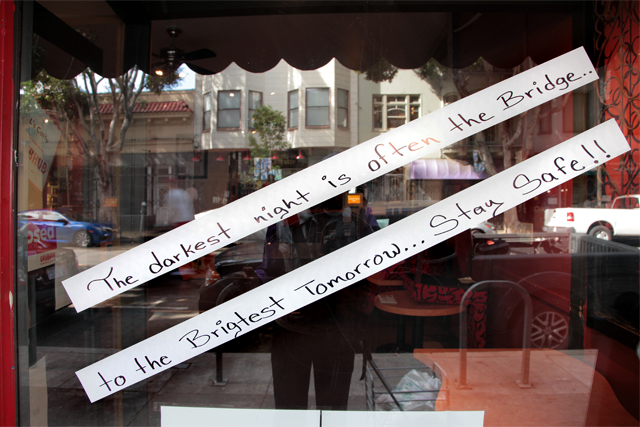 The darkest night is often the Bridge..
to the Brigtest Tomorrow... Stay Safe!!